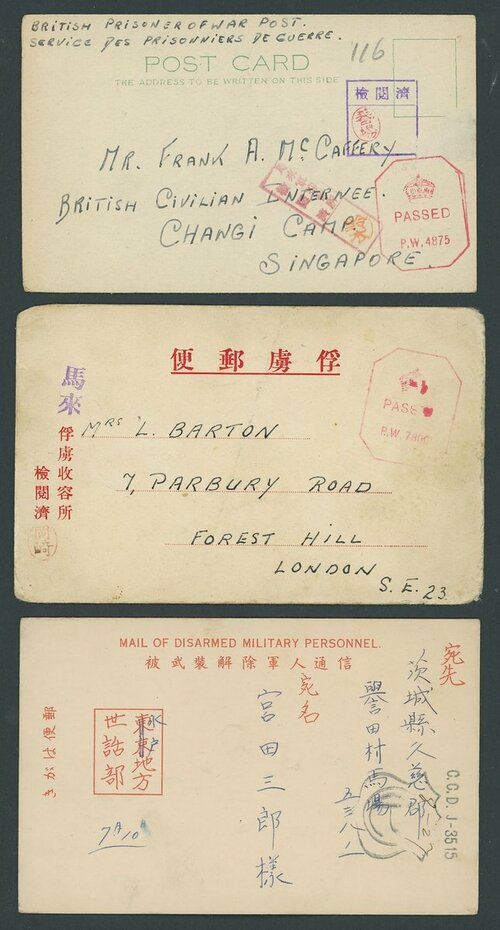 BRITISH PRISONER OF WAR POST.
SERVICE DES PRISONNIERS DE GUERRE.
116
POST CARD
THE ADDRESS TO BE WRITTEN ON THIS SIDE
檢閱濟
MR. FRANK A. McCAFFERY
BRITISH CIVILIAN INTERNEE.
CHANGI CAMP.
SINGAPORE.
PASSED
P.W. 4875
俘虜郵便
馬來
俘虜收容所
檢閱濟
岡崎
PASSED
MRS L. BARTON
7, PARBURY ROAD
FOREST HILL
LONDON
S.E. 23.
MAIL OF DISARMED MILITARY PERSONNEL.
被武裝解除軍人通信
宛先
茨城縣久慈郡
譽田村馬場
宛名
宮田三郎様
水戸
東京地方
世話部
郵便はがき
C.C.D. J-3515